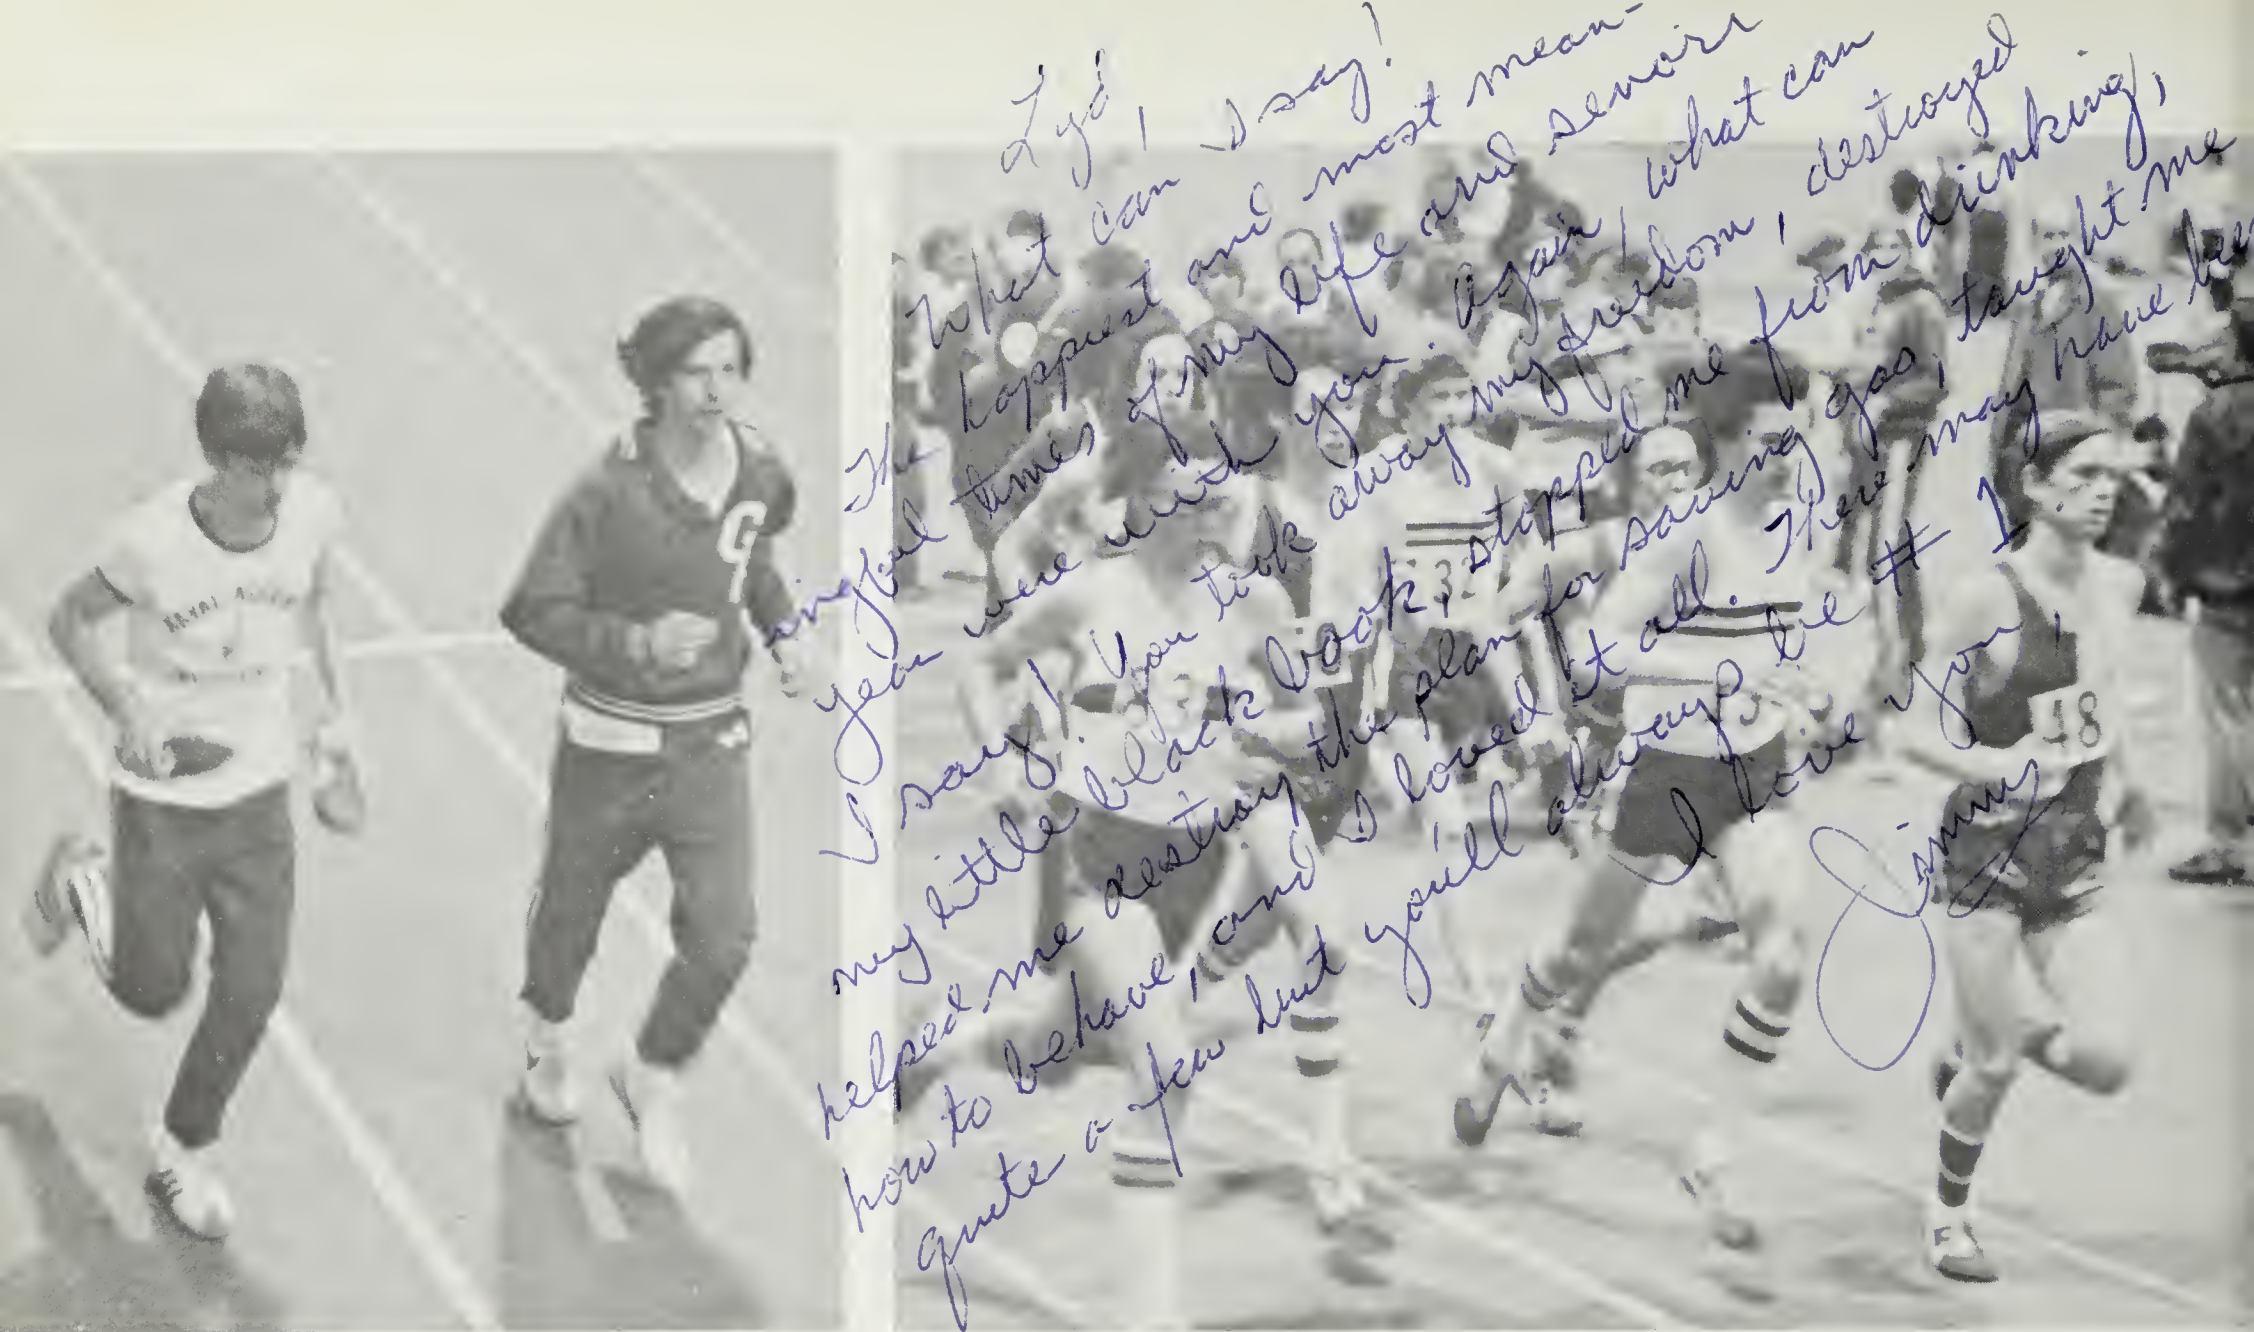 Lyd,
What can I say!
The happiest and most mean-
ingful times of my life and senoir
year were with you. Again, what can
I say! You took away my freedom, destroyed
my little black book, stopped me from drinking,
helped me destroy the plan for saving gas, taught me
how to behave, and I loved it all. There may have bee
quite a few but you'll always be # 1.
I love you,
Jimmy
G
48